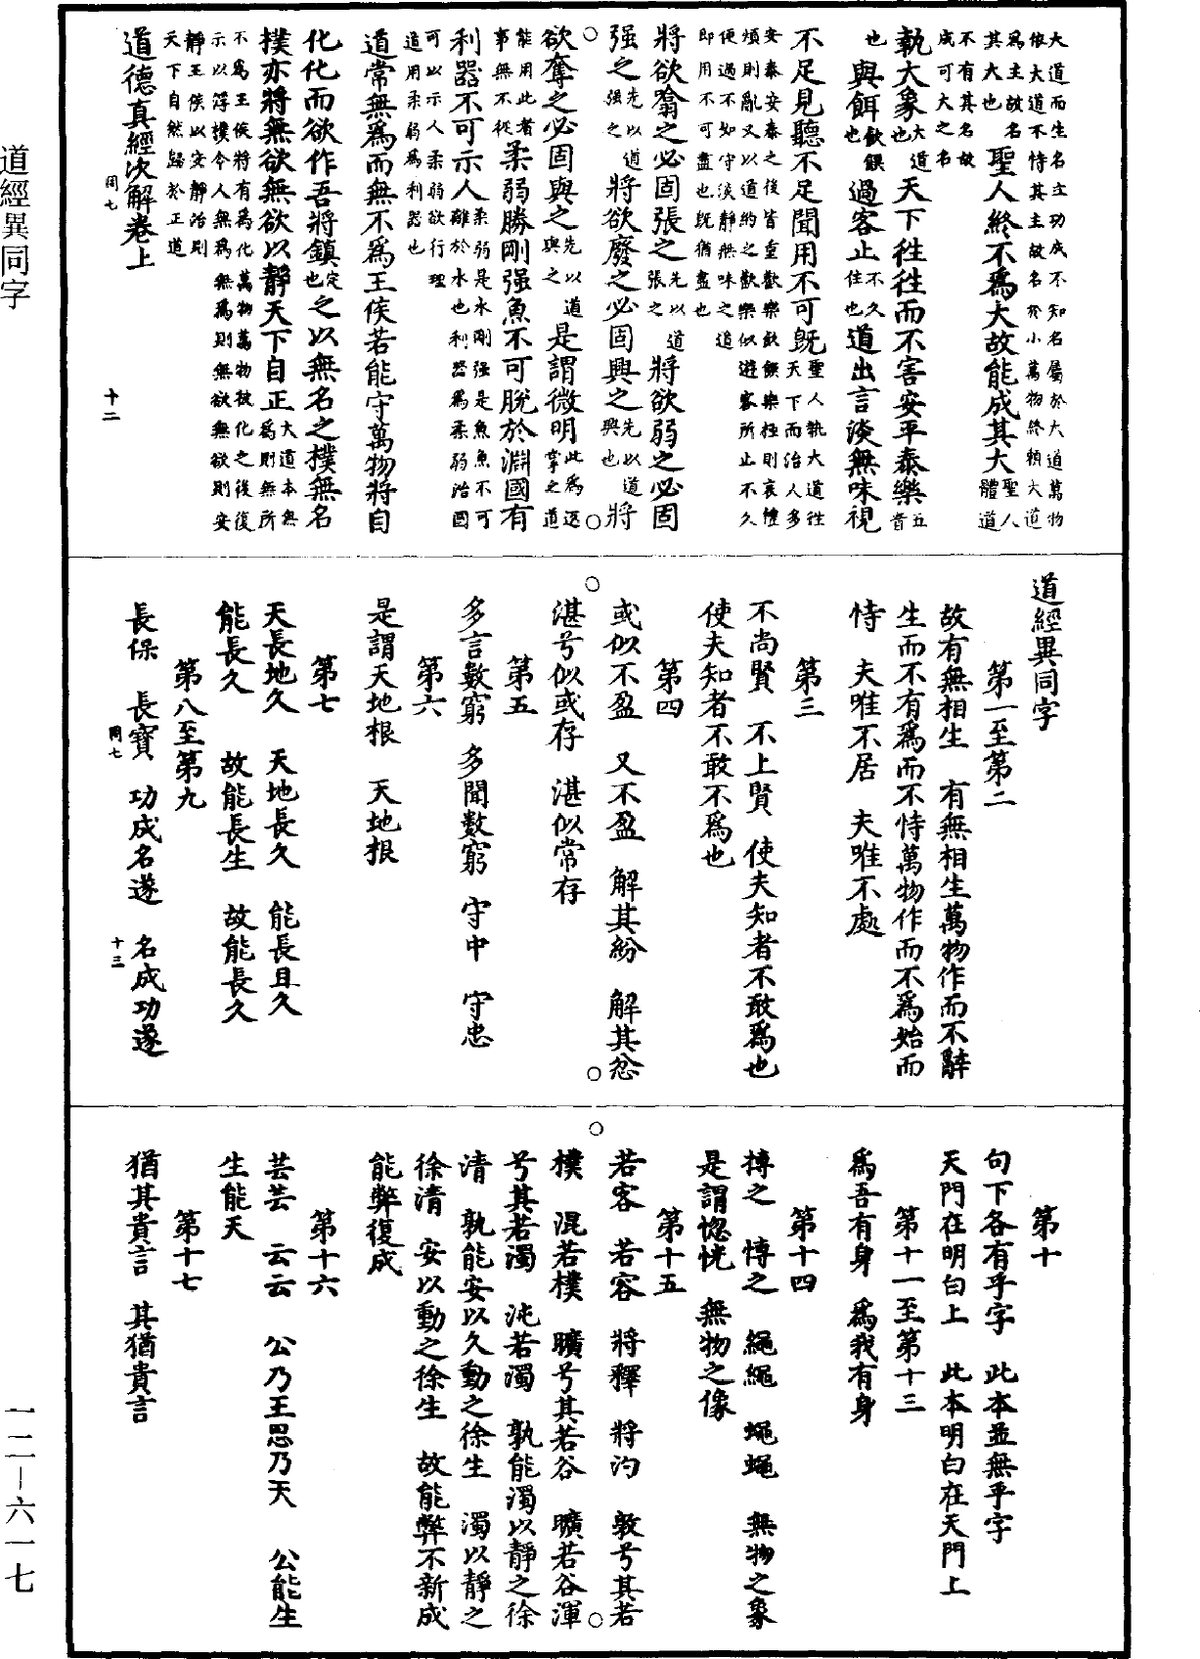 大道而生名立功成不知名屬於大道萬物
依大道不恃其主故名於小萬物終賴大道
為主故名
其大也聖人終不為大故能成其大聖人體道
不有其名故
成可大之名
執大象大道也天下往往而不害安平泰樂五音
也與餌飲饌也過客止不久住也道出言淡無味視
不足見聽不足聞用不可既聖人執大道往天下而治人多
安泰安泰之後皆重歡樂飲饌樂極則哀惶
煩則亂又以道約之歡樂似遊客所止不久
便過不知守淡靜無味之道
即用不可盡也既猶盡也
將欲翕之必固張之先以道張之將欲弱之必固
强之先以道强之將欲廢之必固興之先以道興也將
欲奪之必固與之先以道與之是謂微明此為返掌之道
能用此者
事無不從柔弱勝剛强魚不可脫於淵國有
利器不可示人柔弱是水剛强是魚魚不可離於水也利器為柔弱治國
可以示人柔弱欲行理
道用柔弱為利器也
道常無為而無不為王侯若能守萬物將自
化化而欲作吾將鎮定也之以無名之樸無名
樸亦將無欲無欲以靜天下自正大道本無為則無所
不為王侯將有為化萬物萬物被化之後復
示以淳樸令人無為無為則無欲無欲則安
靜王侯以安靜治則
天下自然歸於正道
道德真經次解卷上
同七
十二
道經異同字
第一至第二
故有無相生　有無相生萬物作而不辭
生而不有為而不恃萬物作而不為始而
恃　夫唯不居　夫唯不處
第三
不尚賢　不上賢　使夫知者不敢為也
使夫知者不敢不為也
第四
或似不盈　又不盈　解其紛　解其忿
湛兮似或存　湛似常存
第五
多言數窮　多聞數窮　守中　守忠
第六
是謂天地根　天地根
第七
天長地久　天地長久　能長且久
能長久　故能長生　故能長久
第八至第九
長保　長寶　功成名遂　名成功遂
同七
十三
第十
句下各有乎字　此本並無乎字
天門在明白上　此本明白在天門上
第十一至第十三
為吾有身　為我有身
第十四
搏之　博之　繩繩　蠅蠅　無物之象
是謂惚恍　無物之像
第十五
若客　若容　將釋　將汋　敦兮其若
樸　混若樸　曠兮其若谷　曠若谷渾
兮其若濁　沌若濁　孰能濁以靜之徐
清　孰能安以久動之徐生　濁以靜之
徐清　安以動之徐生　故能弊不新成
能弊復成
第十六
芸芸　云云　公乃王思乃天　公能生
生能天
第十七
猶其貴言　其猶貴言
道經異同字
一二—六一七